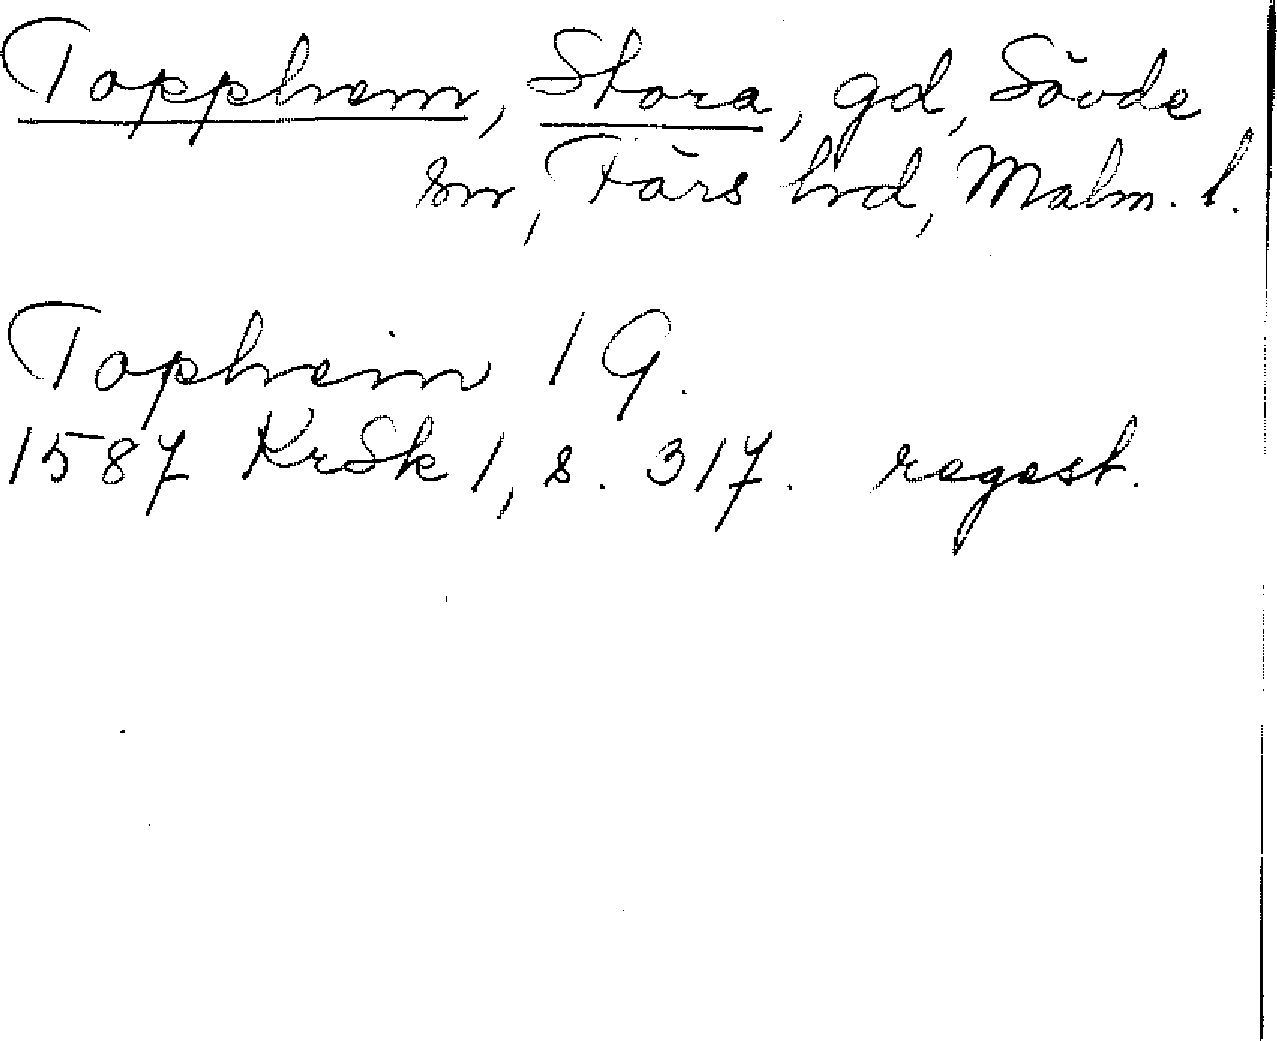 Topphem, Stora, gd, Sövde
sn, Färs hd, Malm. l.
Topheim 1 G.
1587 KrSk 1, s. 317. regest.